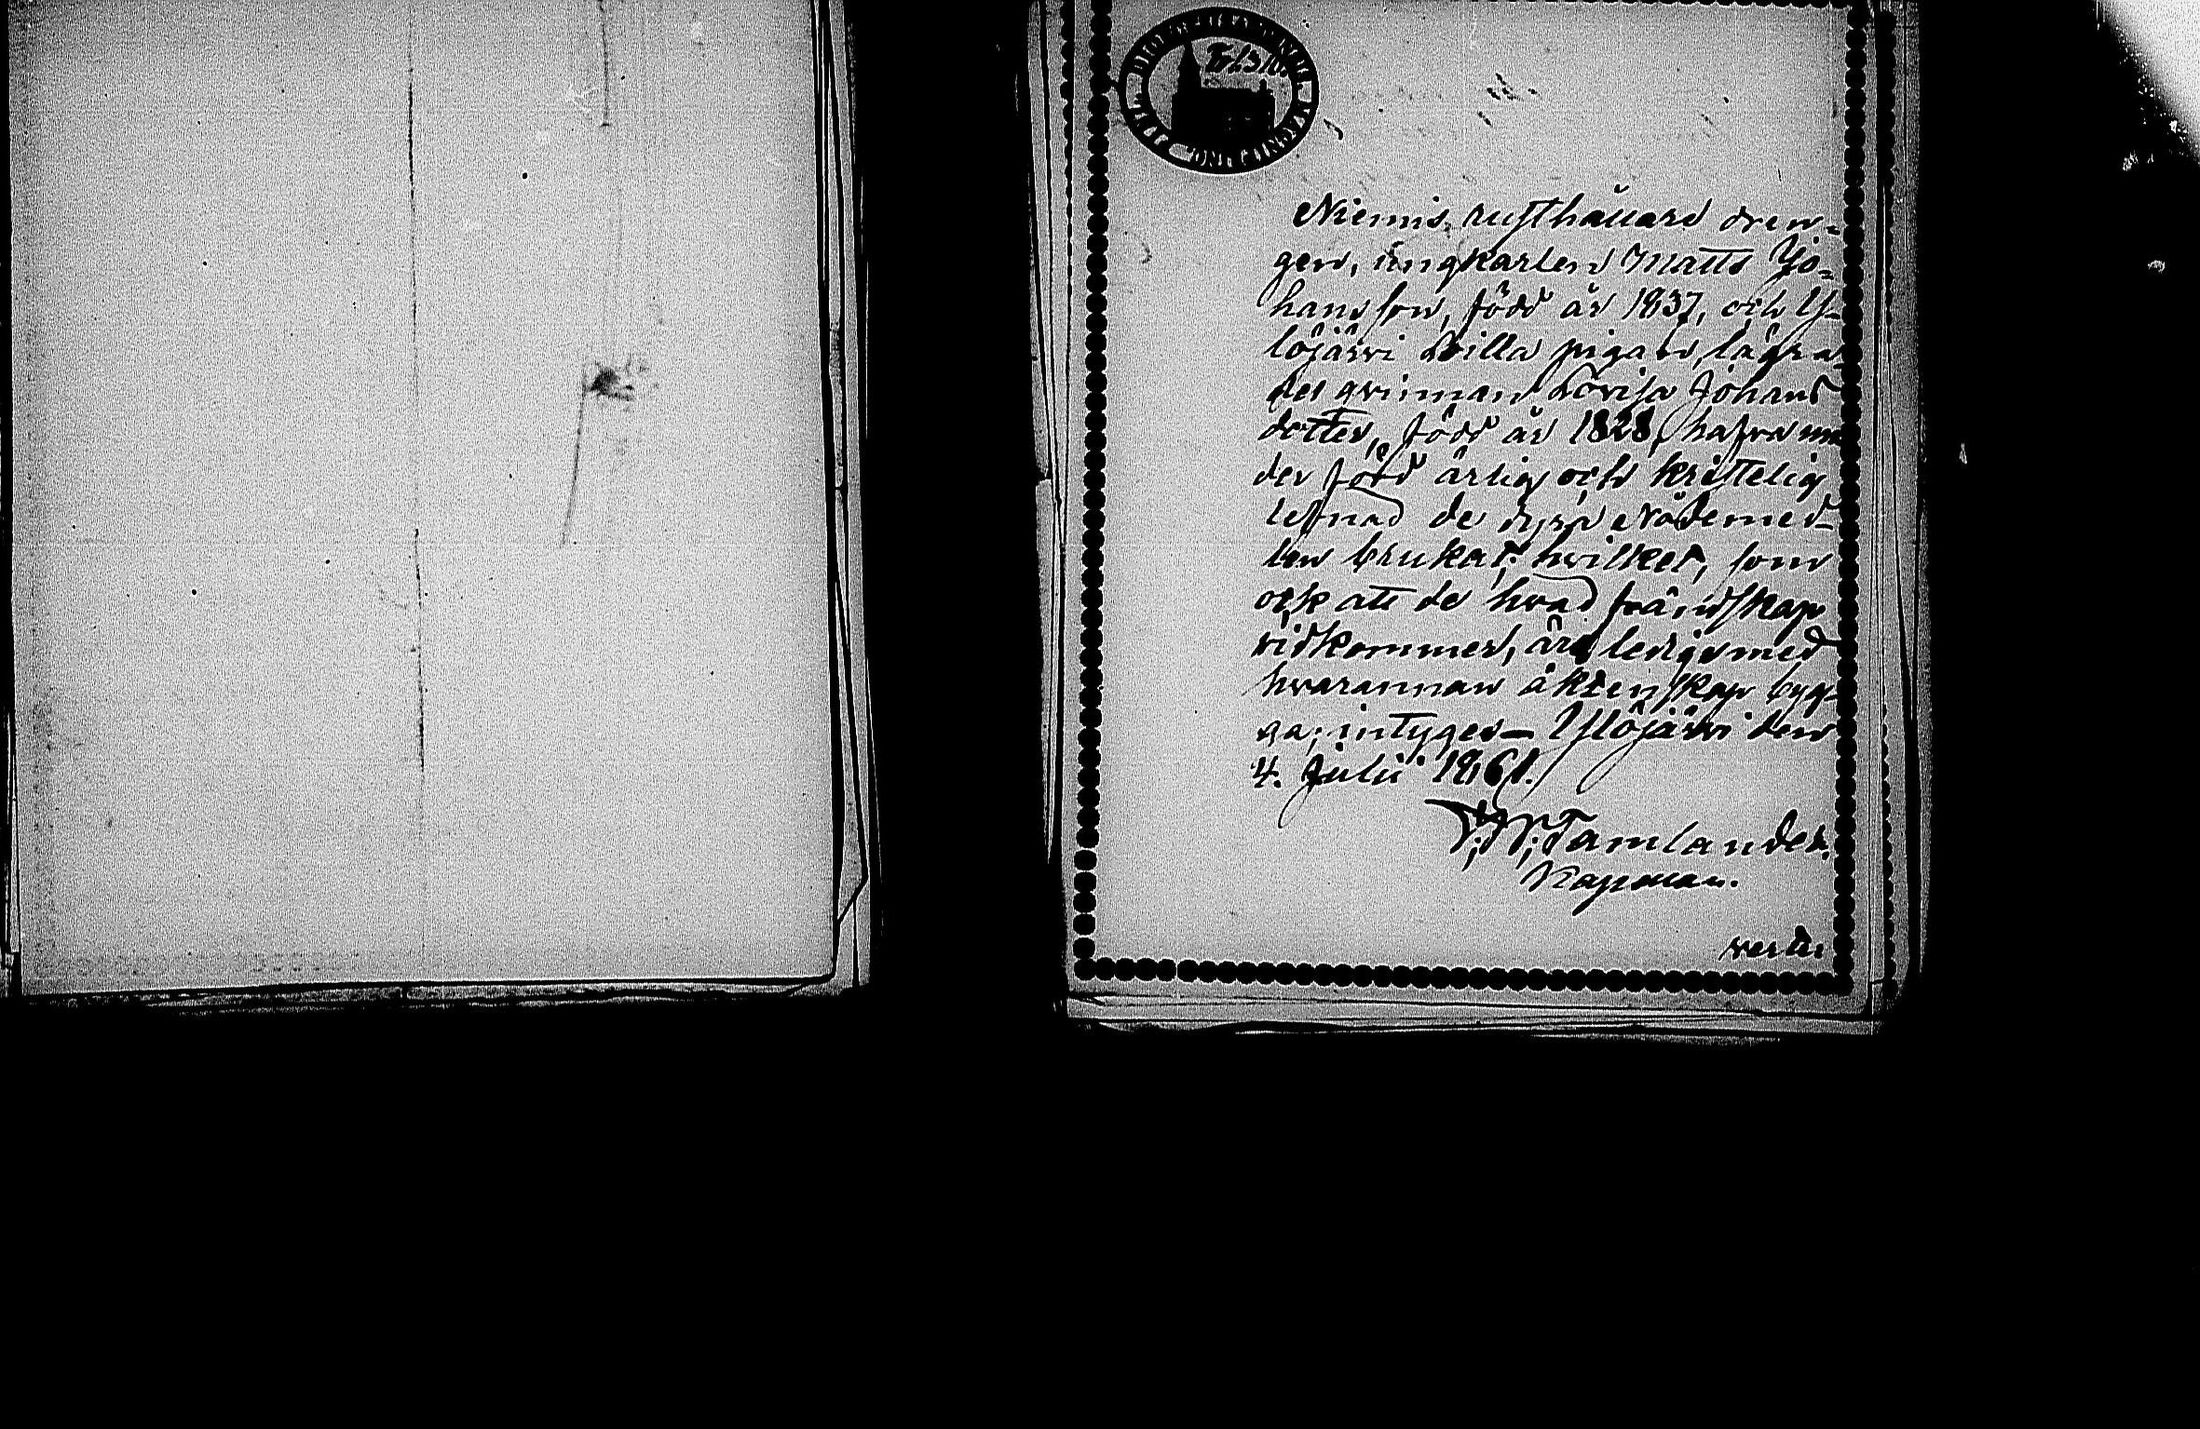 Niemis rusthållard dren-
gen, ungkarlen Matts Jo-
hansson, född år 1837, och Y-
löjärvi Lilla pigan, lägra
des qvinnan Lovisa Johans
dotter, född år 1828, hafva un
der förd ärlig och kristelig
lefnad de dyra Nådemed-
len brukat; hvilket, som
ock att de hvad frändskap
vidkommer, äro lediga med
hvarannan äktenskap byg-
ga; intygar— Ylöjärvi den
4. Julii 1861.
Tamlander.
Kapellan.
vertas